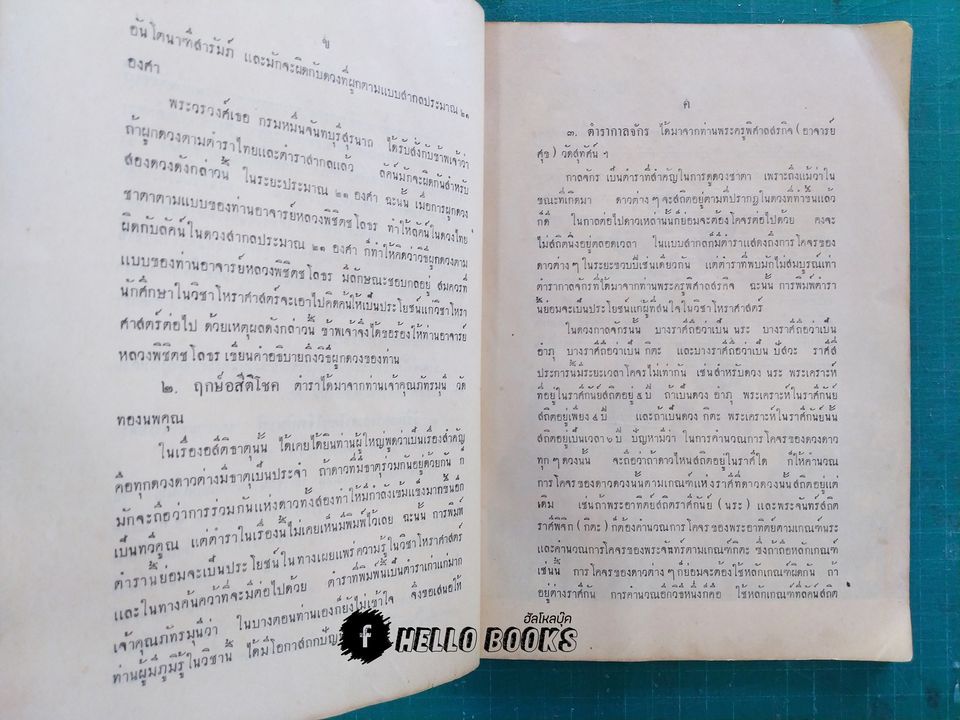 ข
อันโตนาฑีสารัมภ์ และมักจะผิดกับดวงที่ผูกตามแบบสากลประมาณ ๒๑
องศา
พระวรวงศ์เธอ กรมหมื่นจันทบุรีสุรนาถ ได้รับสั่งกับข้าพเจ้าว่า
ถ้าผูกดวงตามตำราไทยและตำราสากลแล้ว ลัคน์มักจะผิดกันสำหรับ
สองดวงดังกล่าวนี้ ในระยะประมาณ ๒๑ องศา ฉะนั้น เมื่อการผูกดวง
ชาตาตามแบบของท่านอาจารย์หลวงพิชิตชโลธร ทำให้ลัคน์ในดวงไทย
ผิดกับลัคน์ในดวงสากลประมาณ ๒๑ องศา ก็ทำให้คิดว่าวิธีผูกดวงตาม
แบบของท่านอาจารย์หลวงพิชิตชโลธร มีลักษณะชอบกลอยู่ สมควรที่
นักศึกษาในวิชาโหราศาสตร์จะเอาไปคิดค้นให้เป็นประโยชน์แก่วิชาโหรา
ศาสตร์ต่อไป ด้วยเหตุผลดังกล่าวนี้ ข้าพเจ้าจึงได้ขอร้องให้ท่านอาจารย์
หลวงพิชิตชโลธร เขียนคำอธิบายถึงวิธีผูกดวงของท่าน
๒. ฤกษ์อสีติโชค ตำราได้มาจากท่านเจ้าคุณภัทรมุนี วัด
ทองนพคุณ
ในเรื่องอสีติธาตุนั้น ได้เคยได้ยินท่านผู้ใหญ่พูดว่าเป็นเรื่องสำคัญ
คือทุกดวงดาวต่างมีธาตุเป็นประจำ ถ้าดาวที่มีธาตุร่วมกันอยู่ด้วยกัน ก็
มักจะถือว่าการร่วมกันแห่งดาวทั้งสองทำให้มีกำลังเข้มแข็งมากขึ้นอีก
เป็นทวีคูณ แต่ตำราในเรื่องนี้ไม่เคยเห็นมีพิมพ์ไว้เลย ฉะนั้น การพิมพ์
ตำรานี้ย่อมจะเป็นประโยชน์ในทางเผยแพร่ความรู้ในวิชาโหราศาสตร์
และในทางค้นคว้าที่จะมีต่อไปด้วย ตำราที่พิมพ์นี้เป็นตำราเก่าแก่มาก
เจ้าคุณภัทรมุนีว่า ในบางตอนท่านเองก็ยังไม่เข้าใจ จึงขอเสนอให้
ท่านผู้มีภูมิรู้ในวิชานี้ ได้มีโอกาสถกปัญ
ค
๓. ตำรากาลจักร ได้มาจากท่านพระครูพิศาลสรกิจ (อาจารย์
ศุข) วัดสุทัศน์ ฯ
กาลจักร เป็นตำราที่สำคัญในการดูดวงชาตา เพราะถึงแม้ว่าใน
ขณะที่เกิดมา ดาวต่าง ๆ จะสถิตอยู่ตามที่ปรากฏในดวงที่ทำขึ้นแล้ว
ก็ดี ในกาลต่อไปดาวเหล่านั้นก็ย่อมจะต้องโคจรต่อไปด้วย คงจะ
ไม่สถิตนิ่งอยู่ตลอดเวลา ในแบบสากลก็มีตำราแสดงถึงการโคจรของ
ดาวต่าง ๆ ในระยะขวบปีเช่นเดียวกัน แต่ตำราที่พบมักไม่สมบูรณ์เท่า
ตำรากาลจักรที่ได้มาจากท่านพระครูพิศาลสรกิจ ฉะนั้น การพิมพ์ตำรา
นี้ย่อมจะเป็นประโยชน์แก่ผู้ที่สนใจในวิชาโหราศาสตร์
ในดวงกาลจักรนั้น บางราศีถือว่าเป็น นระ บางราศีถือว่าเป็น
อำภุ บางราศีถือว่าเป็น กีตะ และบางราศีถือว่าเป็น ปัสวะ ราศีสี่
ประการนี้มีระยะเวลาโคจรไม่เท่ากัน เช่นสำหรับดวง นระ พระเคราะห์
ที่อยู่ในราศีกันย์สถิตอยู่ ๕ ปี ถ้าเป็นดวง อำภุ พระเคราะห์ในราศีกันย์
สถิตอยู่เพียง ๔ ปี และถ้าเป็นดวง กีตะ พระเคราะห์ในราศีกันย์นั้น
สถิตอยู่เป็นเวลา ๖ ปี ปัญหามีว่า ในการคำนวณการโคจรของดวงดาว
ทุก ๆ ดวงนั้น จะถือว่าถ้าดาวไหนสถิตอยู่ในราศีใด ก็ให้คำนวณ
การโคจรของดาวดวงนั้นตามเกณฑ์แห่งราศีที่ดาวดวงนั้นสถิตอยู่แต่
เดิม เช่นถ้าพระอาทิตย์สถิตราศีกันย์ (นระ) และพระจันทร์สถิต
ราศีพิจิก (กีตะ) ก็ต้องคำนวณการโคจรของพระอาทิตย์ตามเกณฑ์นระ
และคำนวณการโคจรของพระจันทร์ตามเกณฑ์กีตะ ซึ่งถ้าถือหลักเกณฑ์
เช่นนี้ การโคจรของดาวต่าง ๆ ก็ย่อมจะต้องใช้หลักเกณฑ์ผิดกัน ถ้า
อยู่ต่างราศีกัน การคำนวณอีกวิธีหนึ่งก็คือ ใช้หลักเกณฑ์ที่ลัคน์สถิต
ฮัลโหลบุ๊ค
HELLO BOOKS